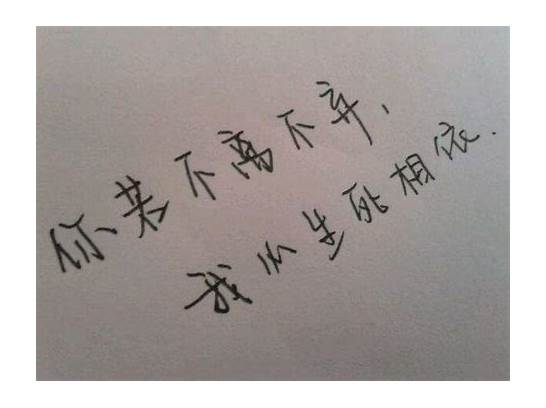 你若不离不弃，
我必生死相依.